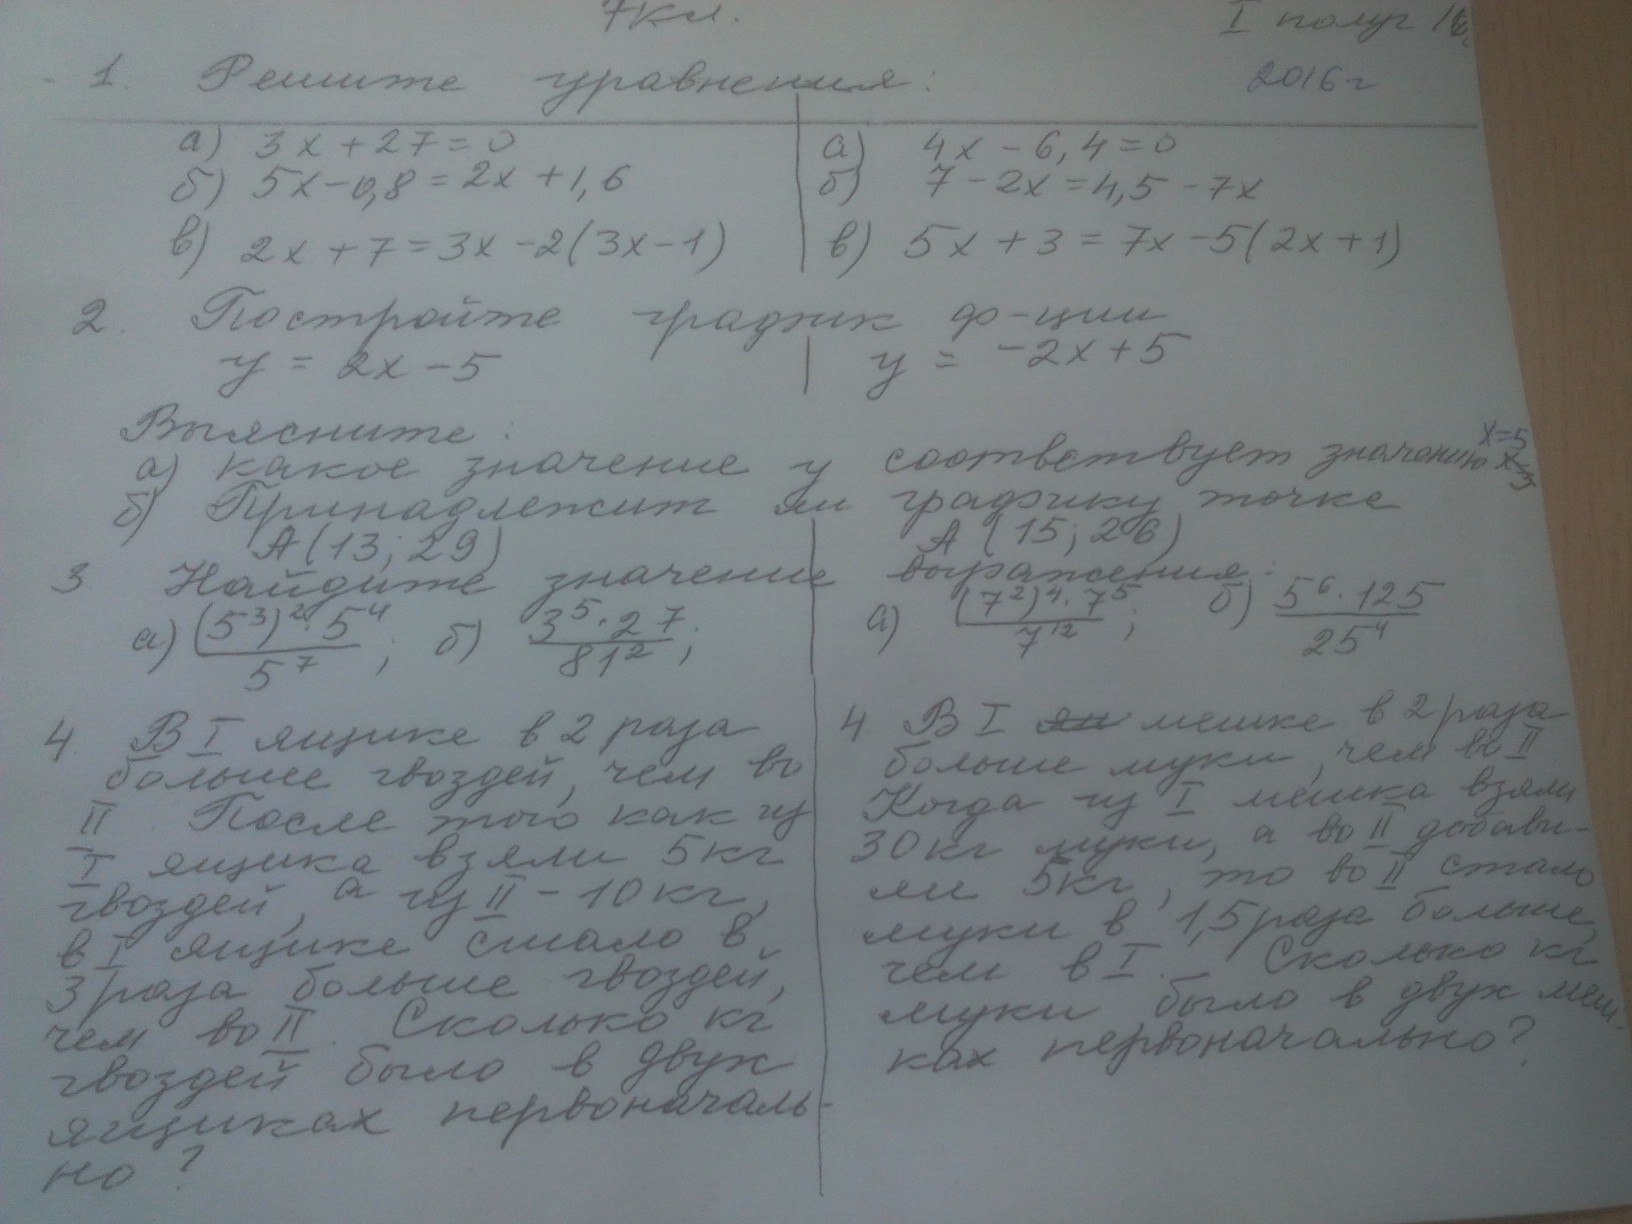 7кл.
I полуг
2016 г
1. Решите уравнения:
а) 3x + 27 = 0
б) 5x - 0,8 = 2x + 1,6
в) 2x + 7 = 3x - 2(3x - 1)
а) 4x - 6,4 = 0
б) 7 - 2x = 4,5 - 7x
в) 5x + 3 = 7x - 5(2x + 1)
2. Постройте график ф-ции
y = 2x - 5
y = -2x + 5
Выясните:
а) какое значение y соответствует значению x=5
б) Принадлежит ли графику точка
A(13; 29)
A (15; 26)
3 Найдите значение выражения:
а) (5³)²·5⁴ / 5⁷ ; б) 3⁵·27 / 81² ;
а) (7²)⁴·7⁵ / 7¹² ; б) 5⁶·125 / 25⁴
4 В I ящике в 2 раза
больше гвоздей, чем во
II После того как из
I ящика взяли 5кг
гвоздей, а из II - 10кг,
в I ящике стало в
3 раза больше гвоздей,
чем во II. Сколько кг
гвоздей было в двух
ящиках первоначаль-
но?
4 В I мешке в 2 раза
больше муки, чем во II
Когда из I мешка взяли
30кг муки, а во II добави-
ли 5кг, то во II стало
муки в 1,5 раза больше,
чем в I. Сколько кг
муки было в двух меш-
ках первоначально?